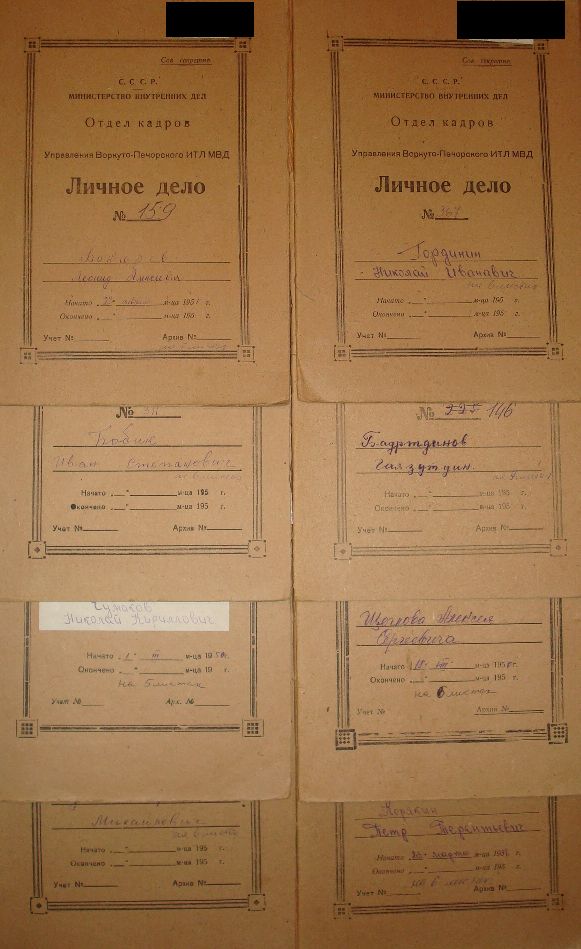 Сов. секретно
С. С. С. Р.
МИНИСТЕРСТВО ВНУТРЕННИХ ДЕЛ
Отдел кадров
Управления Воркуто-Печорского ИТЛ МВД
Личное дело
№ 159
Леонид
Начато 195 г.
Окончено м-ца 195 г.
Учет № Архив №
Сов. секретно
С. С. С. Р.
МИНИСТЕРСТВО ВНУТРЕННИХ ДЕЛ
Отдел кадров
Управления Воркуто-Печорского ИТЛ МВД
Личное дело
№ 367
Гординин
Николай Иванавич
Начато м-ца 195 г.
Окончено м-ца 195 г.
Учет № Архив №
№
Бобик
Иван Степанович
Начато м-ца 195 г.
Окончено м-ца 195 г.
Учет № Архив №
№ 146
Бадртдинов
Гиязутдин
Начато м-ца 195 г.
Окончено м-ца 195 г.
Учет № Архив №
Чумаков
Николай Кириллович
Начато 1 III м-ца 19 г.
Окончено м-ца 19 г.
на 5 листах
Учет № Арх. №
Алексея
Сергеевича
Начато м-ца 195 г.
Окончено м-ца 195 г.
на 6 листах
Учет № Архив №
Михайлович
Начато м-ца 195 г.
Окончено м-ца 195 г.
Учет № Архив №
Корякин
Петр Терентьевич
Начато марта м-ца 195 г.
Окончено м-ца 195 г.
на 6
Учет № Архив №